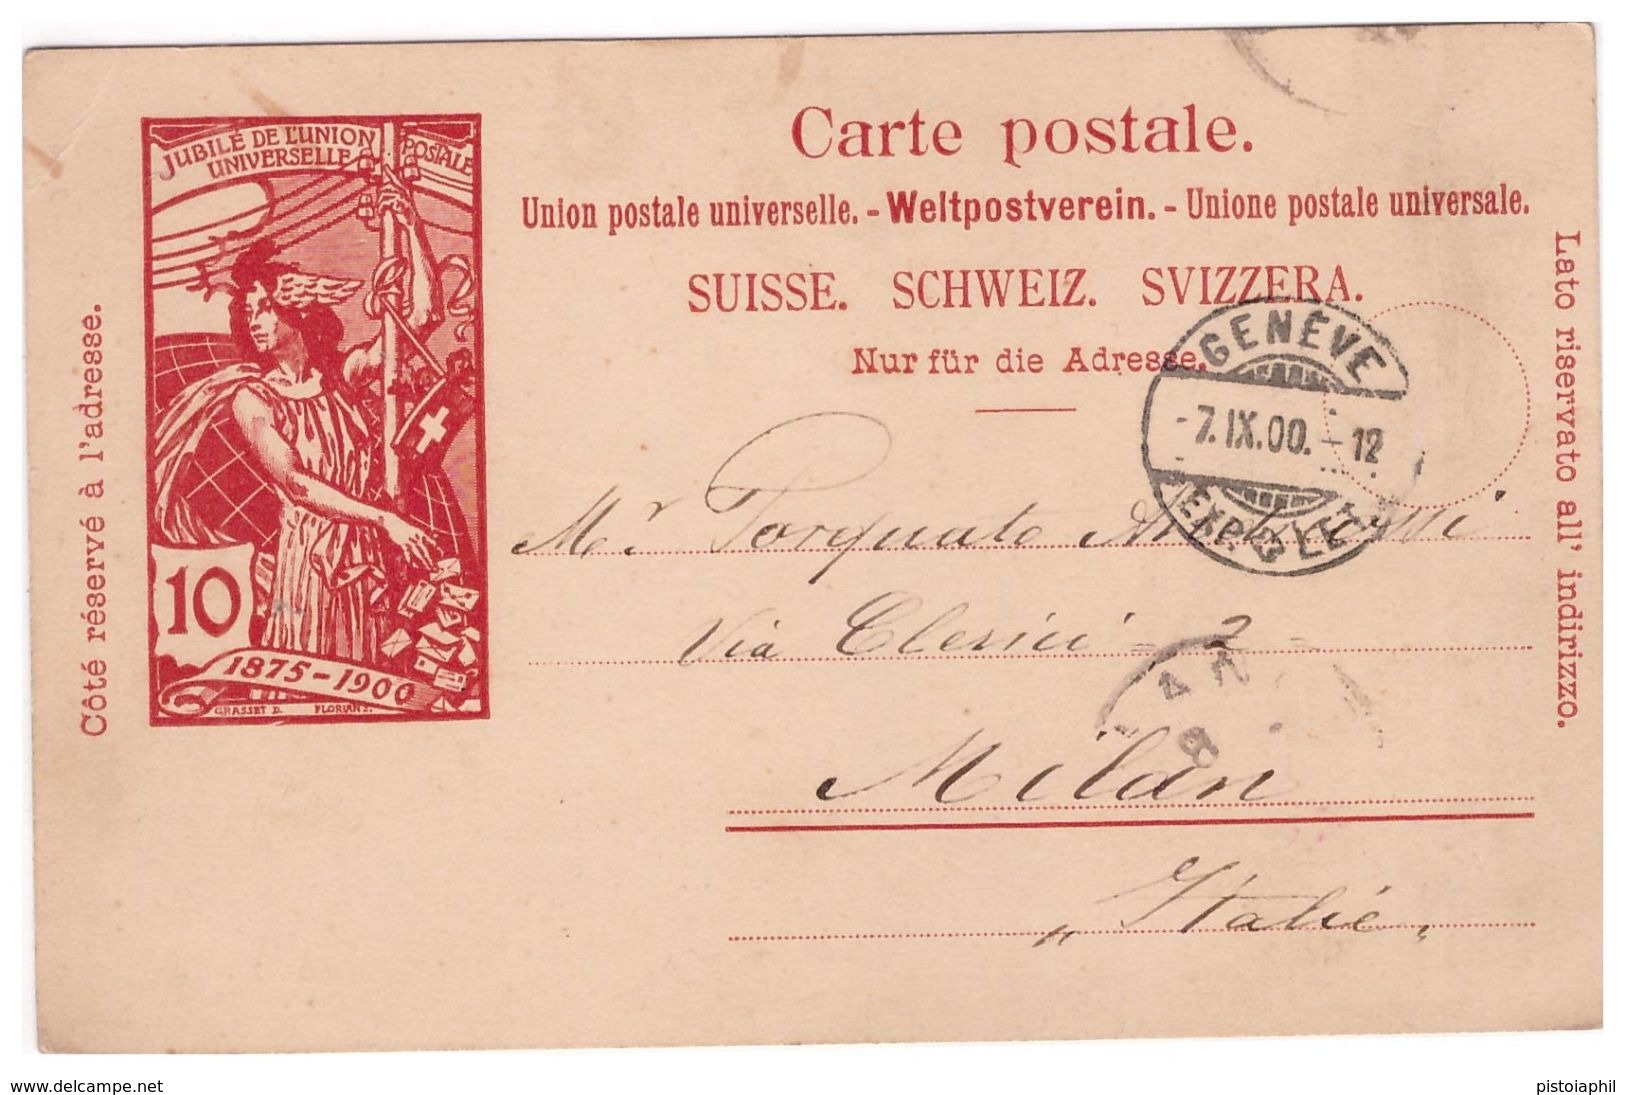 JUBILÉ DE L'UNION POSTALE
UNIVERSELLE
10
1875-1900
GRASSET D. FLORIAN S.
Côté réservé à l'adresse.
Carte postale.
Union postale universelle. - Weltpostverein. - Unione postale universale.
SUISSE. SCHWEIZ. SVIZZERA.
Nur für die Adresse.
Lato riservato all' indirizzo.
GENÈVE
-7. IX. 00. - 12
EXP. LET
Mr Torquato
Via Clerici = 2 =
Milan
„ Italie „
8
www.delcampe.net
pistoiaphil